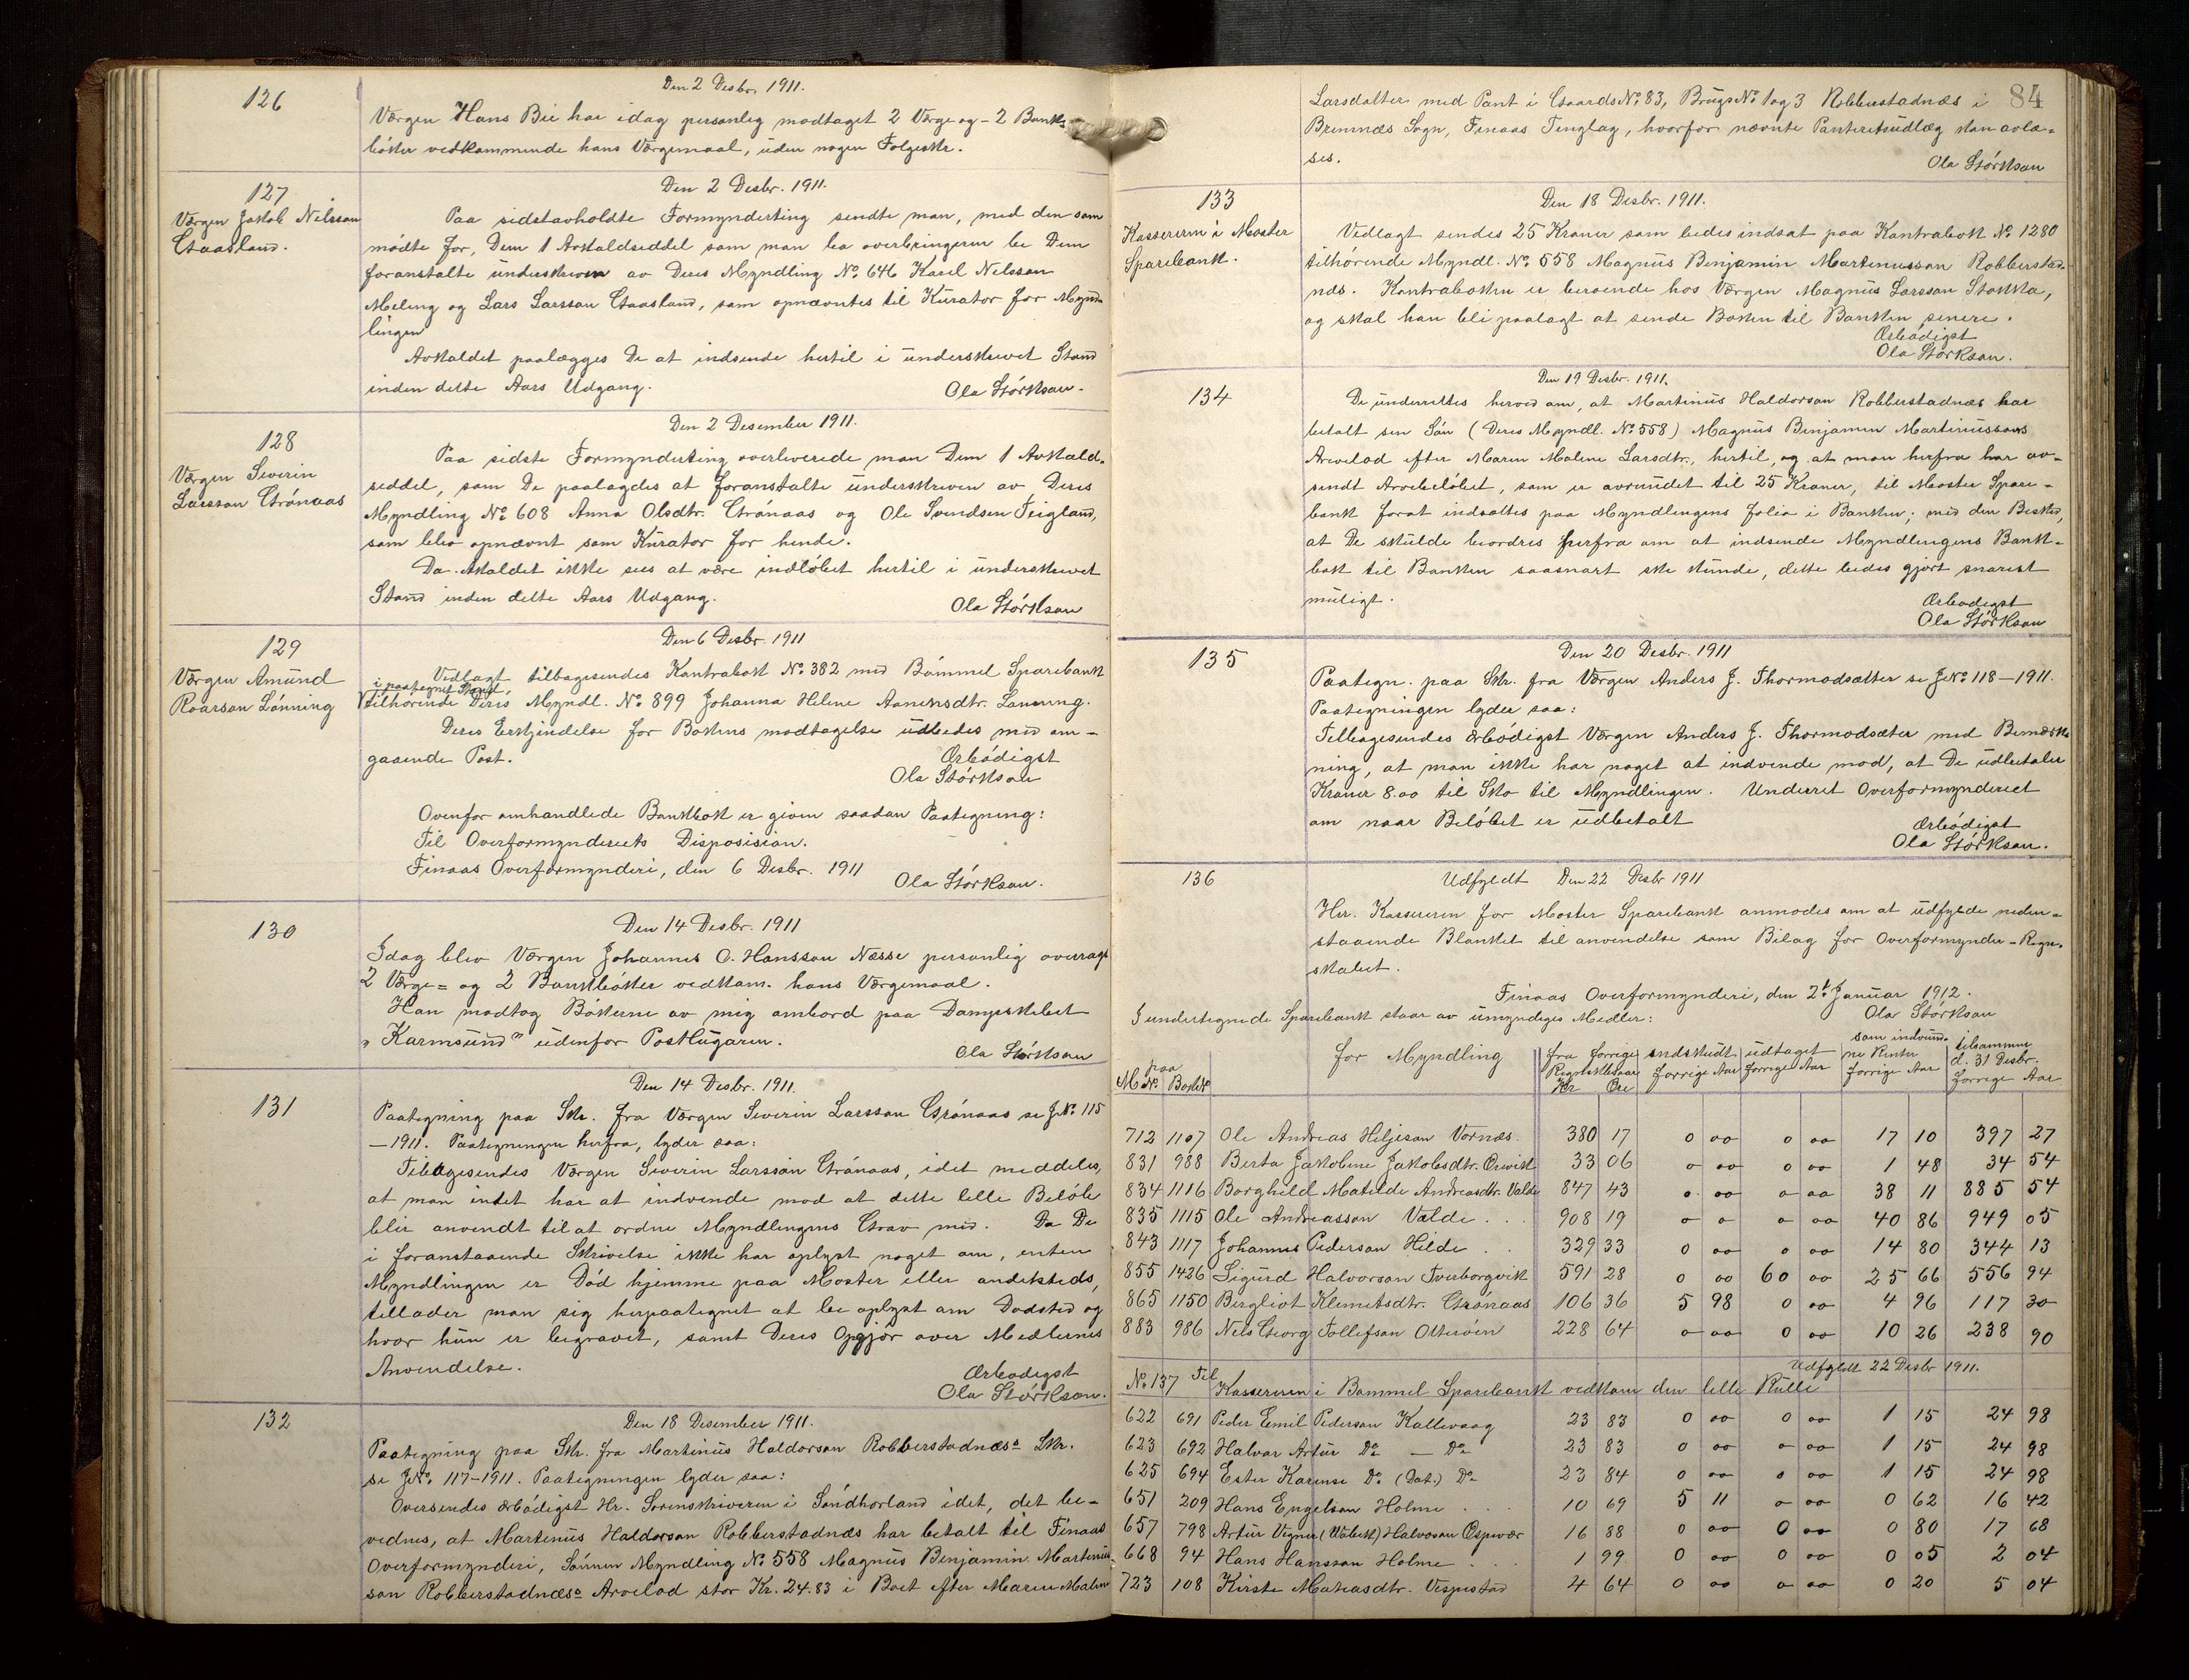 126
Den 2 Desbr. 1911.
Værgen Hans Bie har idag personlig modtaget 2 Værge og - 2 Bank-
bøker vedkommende hans Værgemaal, uden nogen Følgeskr.
127
Værgen Jakob Nilsson
Gaasland.
Den 2 Desbr. 1911.
Paa sidstavholdte Formynderting sendte man, med den som
mødte for, Dem 1 Avkaldseddel som man ba overbringeren be Dem
foranstalte underskreven av Deres Myndling No. 646 Karl Nelsson
Meling og Lars Larsson Gaasland, som opnævntes til Kurator for Mynd-
lingen
Avkaldet paalægges De at indsende hertil i underskrevet Stand
inden dette Aars Udgang.
Ola Størkson.
128
Værgen Severin
Larsson Grønaas
Den 2 Desember 1911.
Paa sidste Formynderting overleverede man Dem 1 Avkald-
seddel, som De paalagdes at foranstalte underskreven av Deres
Myndling No. 608 Anna Olsdtr. Grønaas og Ole Svendsen Teigland,
som blev opnævnt som Kurator for hende.
Da Avkaldet ikke sees at være indløbet hertil i underskrevet
Stand inden dette Aars Udgang.
Ola Størkson
129
Værgen Amund
Roarson Lønning
Den 6 Desbr. 1911
Vedlagt tilbagesendes Kontrabok No. 382 med Bømmel Sparebank
i paategnet Stand,
tilhørende Deres Myndl. No. 899 Johanna Helene Aanensdtr. Lønning.
Deres Erkjendelse for Bokens modtagelse udbedes med om-
gaaende Post.
Ærbødigst
Ola Størkson
Ovenfor omhandlede Bankbok er given saadan Paategning:
Til Overformynderiets Disposision.
Finaas Overformynderi, den 6 Desbr. 1911
Ola Størkson.
130
Den 14 Desbr. 1911
Idag blev Værgen Johannes O. Hansson Næsse personlig overragt
2 Værge= og 2 Bankbøker vedkom. hans Værgemaal.
Han modtog Bøkerne av mig ombord paa Dampskibet
"Karmsund" udenfor Posthugaren.
Ola Størkson
131
Den 14 Desbr. 1911.
Paategning paa Skr. fra Værgen Severin Larsson Grønaas se JNo. 115
-1911. Paategningen herfra, lyder saa:
Tilbagesendes Værgen Severin Larsson Grønaas, idet meddeles,
at man intet har at indvende mod at dette lille Beløb
blir anvendt til at ordne Myndlingens Grav med. Da De
i foranstaaende Skrivelse ikke har oplyst noget om, enten
Myndlingen er Død hjemme paa Moster eller andetsteds,
tillader man sig herpaategnet at be oplyst om Dødsted og
hvor hun er begravet, samt Deres Opgjør over Medlernes
Anvendelse.
Ærbødigst
Ola Størkson.
132
Den 18 Desember 1911.
Paategning paa Skr. fra Martinus Haldorson Robberstadnæs Skr.
se JNo. 117-1911. Paategningen lyder saa:
Oversendes ærbødigst Hr. Sorenskriveren i Søndhorland idet, det be-
vidnes, at Martinus Haldorson Robberstadnæs har betalt til Finaas
Overformynderi, Sønnen Myndling No. 558 Magnus Benjamin Martinus-
son Robberstadnæs Arvelod stor Kr. 24.83 i Boet efter Maren Malene
84
Larsdatter med Pant i Gaards No. 83, Brugs No. 1 og 3 Robberstadnæs i
Bremnæs Sogn, Finaas Tinglag, hvorfor nævnte Panteretsudlæg kan avlæ-
ses.
Ola Størkson
133
Kassereren i Moster
Sparebank.
Den 18 Desbr. 1911.
Vedlagt sendes 25 Kroner som bedes indsat paa Kontrabok No. 1280
tilhørende Myndl. No. 558 Magnus Benjamin Martinusson Robberstad-
næs. Kontraboken er beroende hos Værgen Magnus Larsson Stokka,
og skal han bli paalagt at sende Boken til Banken senere.
Ærbødigst
Ola Størkson.
134
Den 19 Desbr. 1911.
De underrettes herved om, at Martinus Haldorson Robberstadnæs har
betalt sin Søn (Deres Myndl. No. 558) Magnus Benjamin Martinussons
Arvelod efter Maren Malene Larsdtr., hertil, og at man herfra har av-
sendt Arvebeløbet, som er avrundet til 25 Kroner, til Moster Spare-
bank forat indsættes paa Myndlingens folio i Banken; med den Besked,
at De skulde beordres herfra om at indsende Myndlingens Bank-
bok til Banken saasnart ske kunde, dette bedes gjort snarest
muligt.
Ærbødigst
Ola Størkson
135
Den 20 Desbr. 1911
Paategn. paa Skr. fra Værgen Anders J. Thormodsætter se JNo. 118-1911.
Paategningen lyder saa:
Tilbagesendes ærbødigst Værgen Anders J. Thormodsæter med Bemærk-
ning, at man ikke har noget at indvende mod, at De udbetaler
Kroner 8.00 til Sko til Myndlingen. Underret Overformynderiet
om naar Beløbet er udbetalt
Ærbødigst
Ola Størkson.
136
Udfyldt Den 22 Desbr 1911
Hr. Kassereren for Moster Sparebank anmodes om at udfylde neden-
staaende Blanket til anvendelse som Bilag for Overformynder-Regn-
skabet.
Finaas Overformynderi, den 2. Januar 1912.
Ola Størkson
I undertegnede Sparebank staar av umyndiges Medler:
M No. paa Bok No for Myndling fra forrige Regnskabsaar Kr Øre indskudt forrige Aar udtaget forrige Aar som indvundne Renter forrige Aar tilsammen d. 31 Desbr. forrige Aar
712 1107 Ole Andreas Heljeson Vornæs. 380 17 0 00 0 00 17 10 397 27
831 988 Berta Jakobine Jakobsdtr. Ørevik 33 06 0 00 0 00 1 48 34 54
834 1116 Borghild Matilde Andreasdtr. Valde 847 43 0 00 0 00 38 11 885 54
835 1115 Ole Andreasson Valde . . . 908 19 0 0 0 00 40 86 949 05
843 1117 Johannes Pederson Hilde . . 329 33 0 00 0 00 14 80 344 13
855 1426 Sigurd Halvorson Tverborgvik 591 28 0 00 60 00 25 66 556 94
865 1150 Bergliot Klemetsdtr. Grønaas 106 36 5 98 0 00 4 96 117 30
883 986 Nels Georg Tollefson Otterøen 228 64 0 00 0 00 10 26 238 90
Udfyldt 22 Desbr 1911.
No. 137 Til Kassereren i Bømmel Sparebank vedkom den lille Rulle
622 691 Peder Emil Pederson Kallevaag 23 83 0 00 0 00 1 15 24 98
623 692 Halvar Artur Do — Do 23 83 0 00 0 00 1 15 24 98
625 694 Ester Karense Do. (Dat.) Do 23 84 0 00 0 00 1 15 24 98
651 209 Hans Engelson Holme . . . 10 69 5 11 0 00 0 62 16 42
657 798 Artur Vigner Halvoson Espevær 16 88 0 00 0 00 0 80 17 68
668 94 Hans Hansson Holme . . . 1 99 0 00 0 00 0 05 2 04
723 108 Kirste Matiasdtr. Vespestad 4 64 0 00 0 00 0 20 5 04